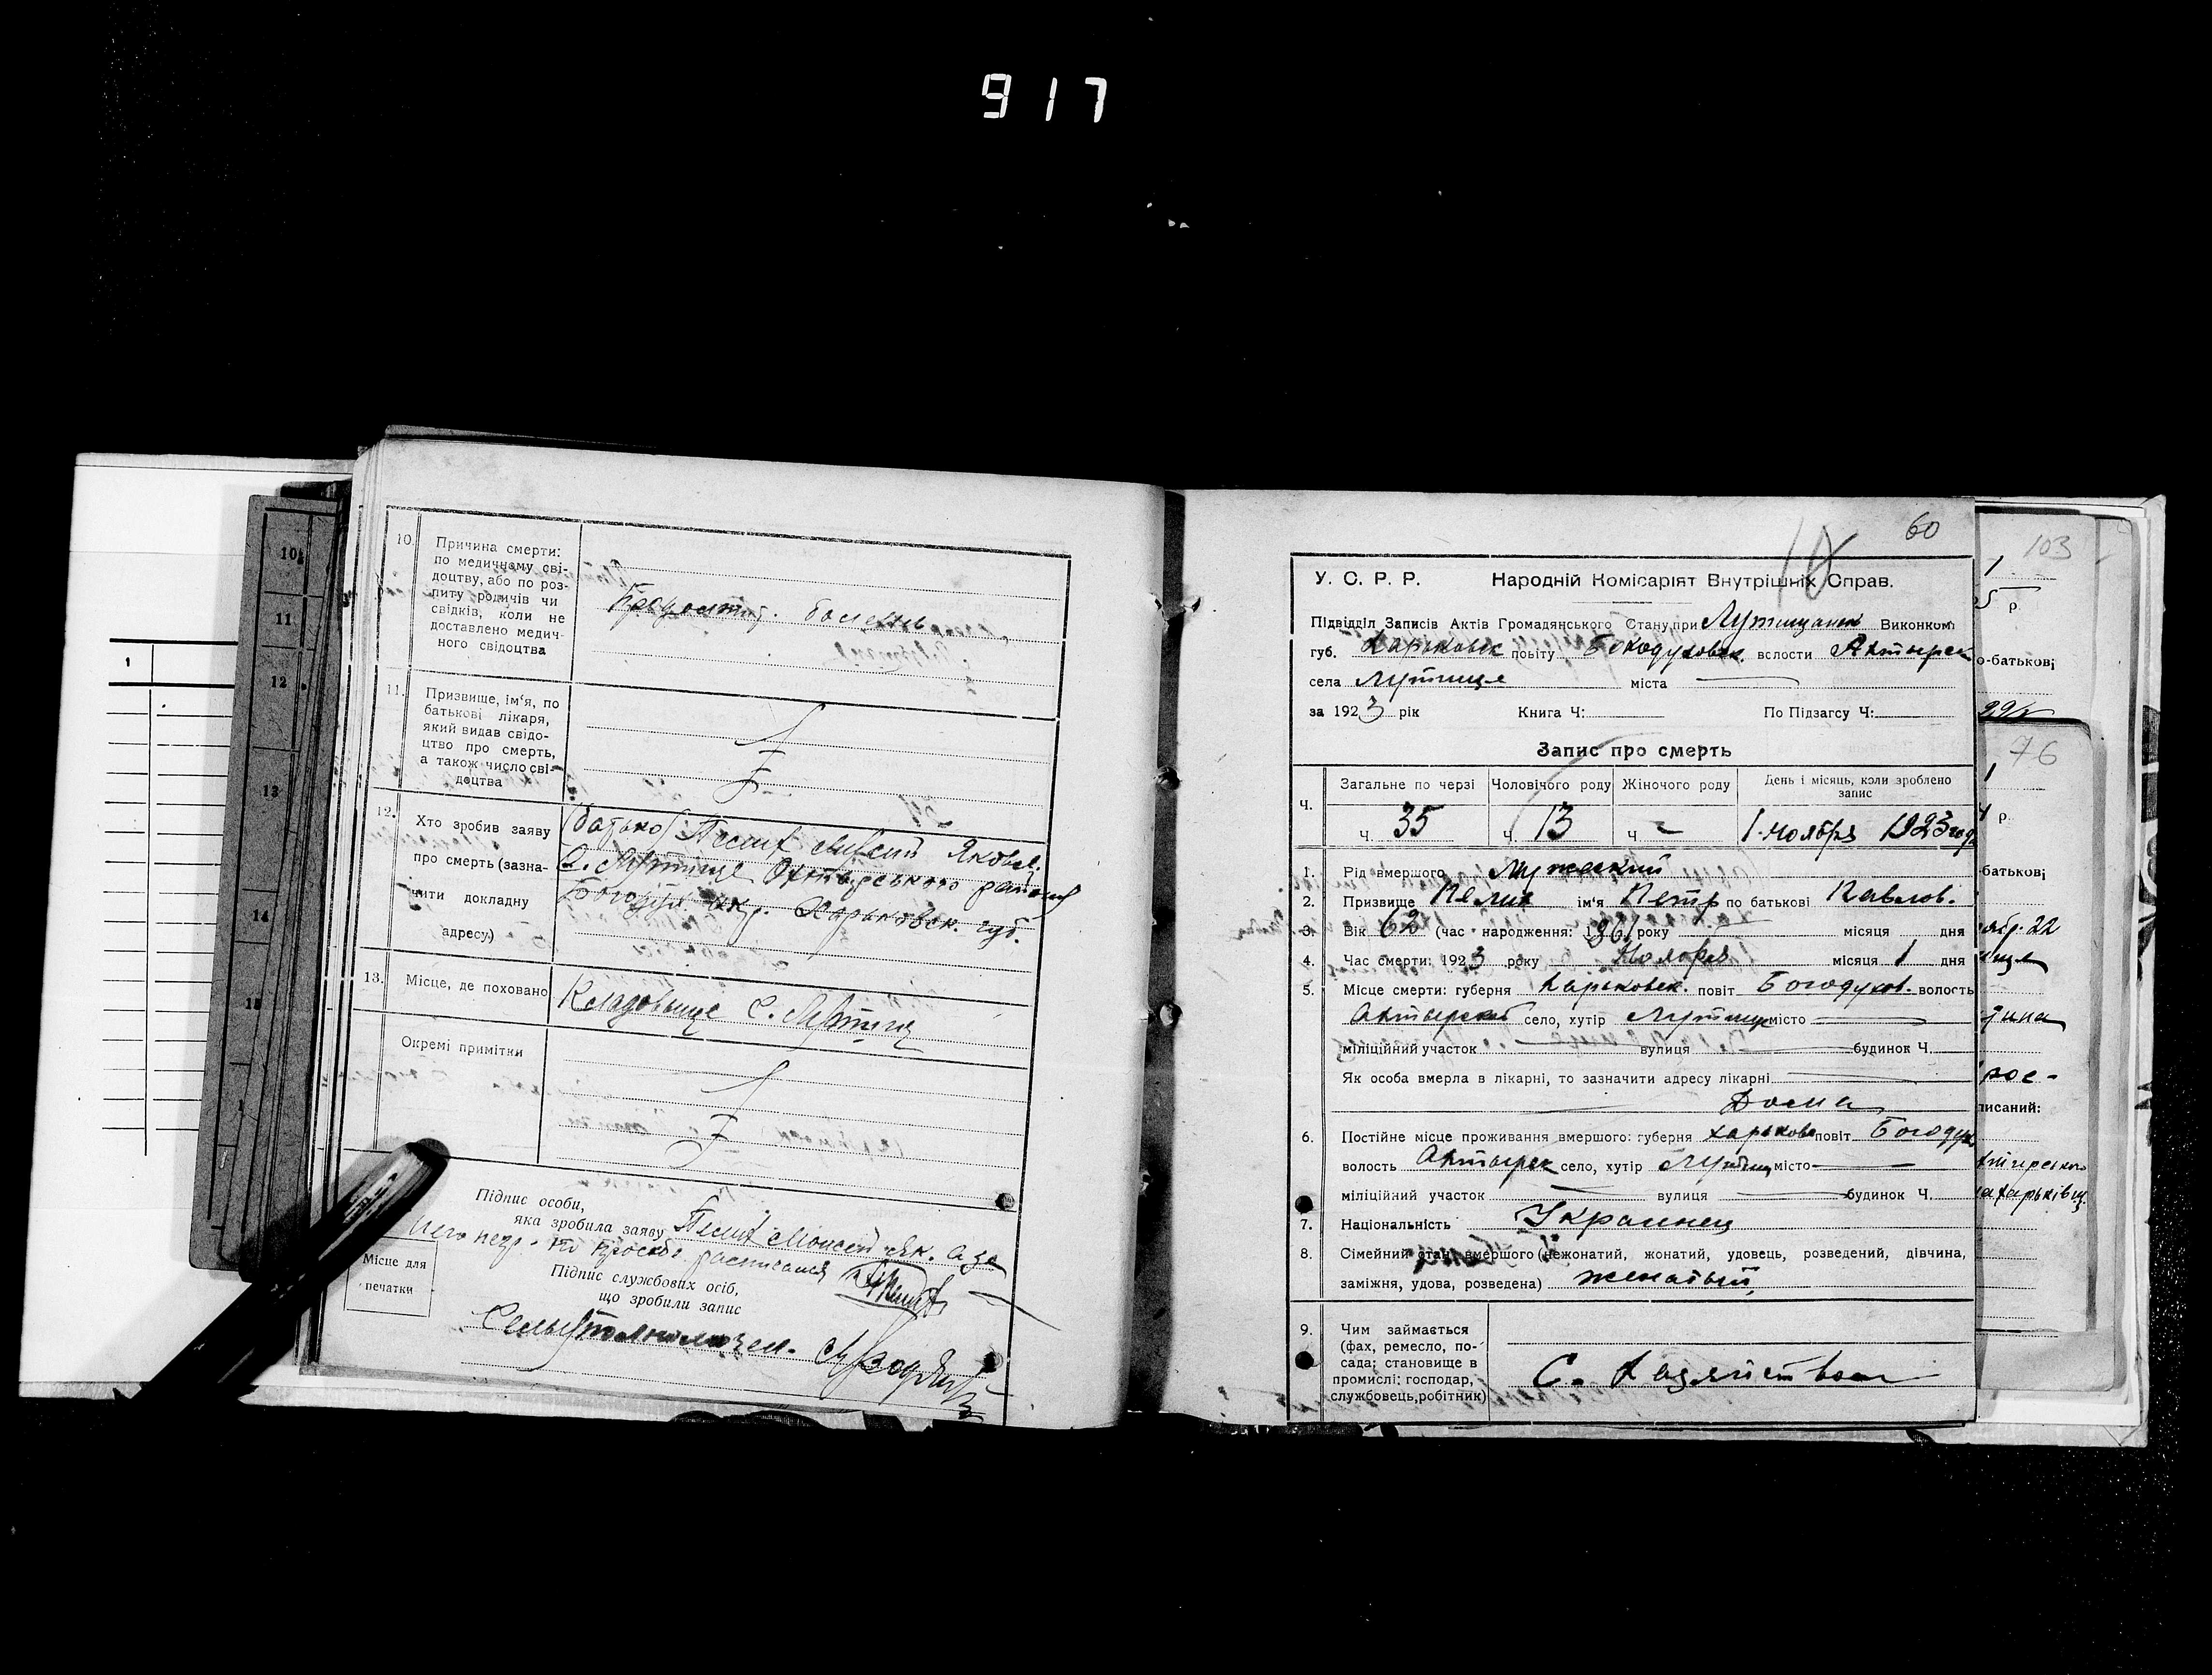 917
10.
Причина смерти:
по медичному сві-
доцтву, або по роз-
питу родичів чи
свідків, коли не
доставлено медич-
ного свідоцтва
болезнь
11.
Призвище, ім'я, по
батькові лікаря,
який видав свідо-
цтво про смерть,
а також число сві-
доцтва
12.
Хто зробив заяву
про смерть (зазна-
чити докладну
адресу.)
(батько)
С. Лутище Охтырського району
Богодух. окр. Харьковск. губ.
13.
Місце, де поховано
Кладовище С. Лутищ
Окремі примітки
Підпис особи,
яка зробила заяву
Моисей Як. а за
него негр. по просьбе росписался
Місце для
печатки
Підпис службових осіб,
що зробили запис
1
10
11
12
13
14
15
1
60
У. С. Р. Р. Народній Комісаріят Внутрішніх Справ.
Підвідділ Записів Актів Громадянського Стану при Лутищанск Виконком
губ. Харьковск повіту Богодуховск. вслости Ахтырск
села Лутище міста
за 1923 рік Книга Ч: По Підзагсу Ч:
Запис про смерть
Ч. Загальне по черзі Чоловічого роду Жіночого роду День і місяць, коли зроблено
запис
ч. 35 ч. 13 ч. – 1 ноября 1923 год
1. Рід вмершого Мужеский
2. Призвище ім'я Петр по батькові Павлов.
3. Вік 62 (час народження: 1861 року місяця дня
4. Час смерти: 1923 року Ноября місяця 1 дня
5. Місце смерти: губерня Харьковск. повіт Богодухов. волость
Ахтырской село, хутір Лутище місто
міліційний участок вулиця будинок Ч.
Як особа вмерла в лікарні, то зазначити адресу лікарні
Дома
6. Постійне місце проживання вмершого: губерня Харьков повіт Богодух
волость Ахтырск село, хутір Лутищ місто
міліційний участок вулиця будинок Ч.
7. Національність Украинец
8. Сімейний стан вмершого (нежонатий, жонатий, удовець, розведений, дівчина,
заміжня, удова, розведена) женатый
9. Чим займається
(фах, ремесло, по-
сада; становище в
промислі; господар,
службовець, робітник)
С. Хазяйством
103
1
5 р.
о-батькові
76
1
р.
батькові
22
писаний: